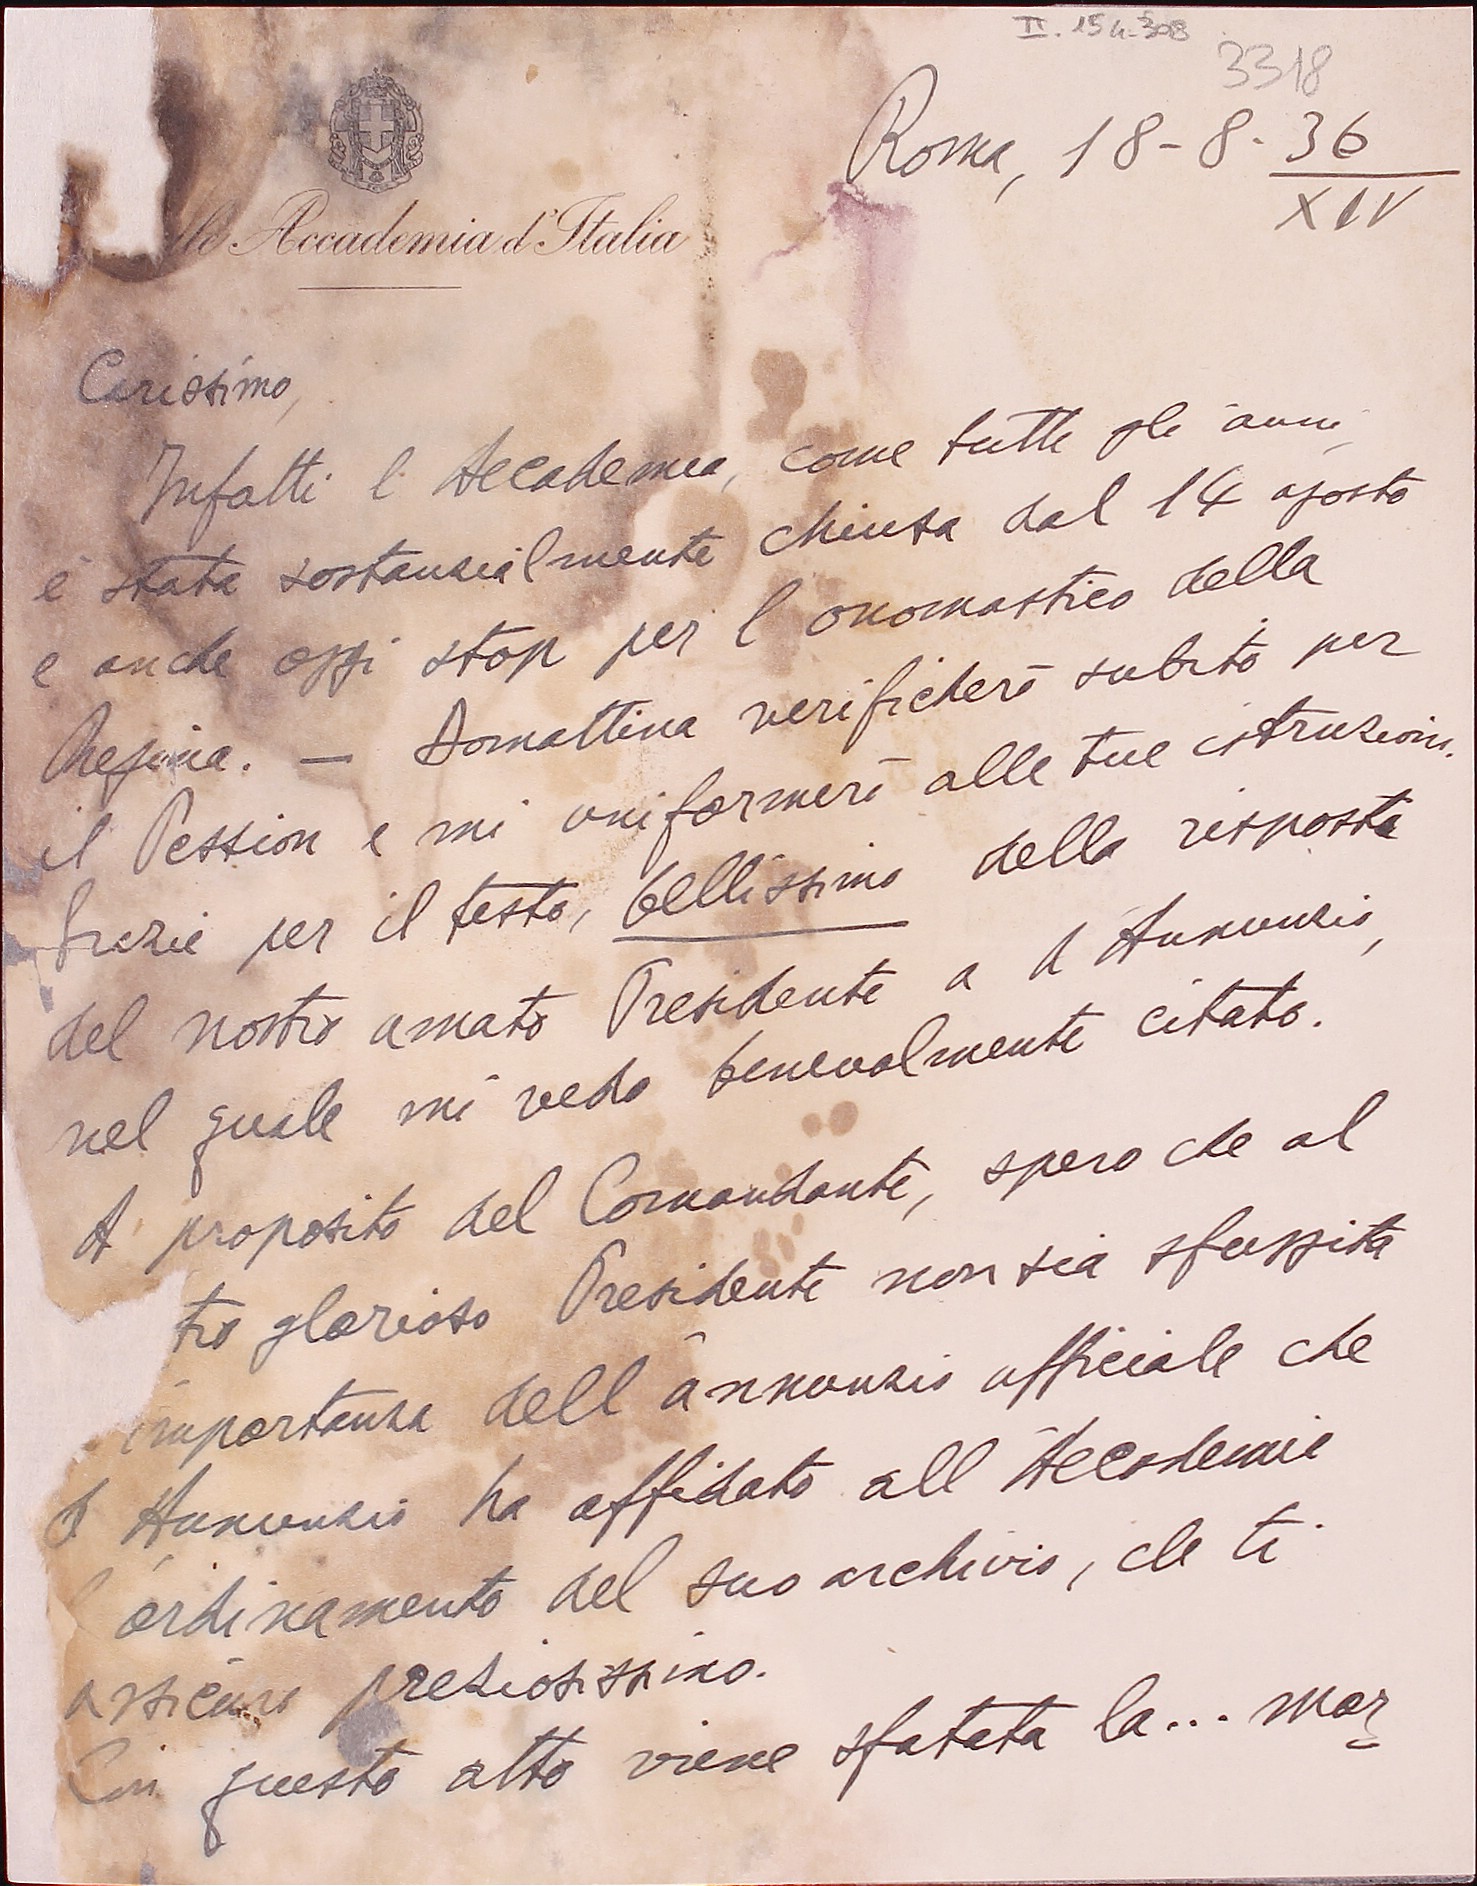 II. 154-308
3318
Roma, 18-8-36
XIV
Accademia d'Italia
Carissimo,
Infatti l'Accademia, come tutti gli anni,
è stata sostanzialmente chiusa dal 14 agosto
e anche oggi stop per l'onomastico della
Regina. — Domattina verificherò subito per
il Pession e mi uniformerò alle tue istruzioni.
Grazie per il testo, bellissimo della risposta
del nostro amato Presidente a d'Annunzio,
nel quale mi vedo benevolmente citato.
A proposito del Comandante, spero che al
tro glorioso Presidente non sia sfuggita
importanza dell'annunzio ufficiale che
d'Annunzio ha affidato all'Accademia
l'ordinamento del suo archivio, che ti
assicuro preziosissimo.
Con questo atto viene sfatata la... mor